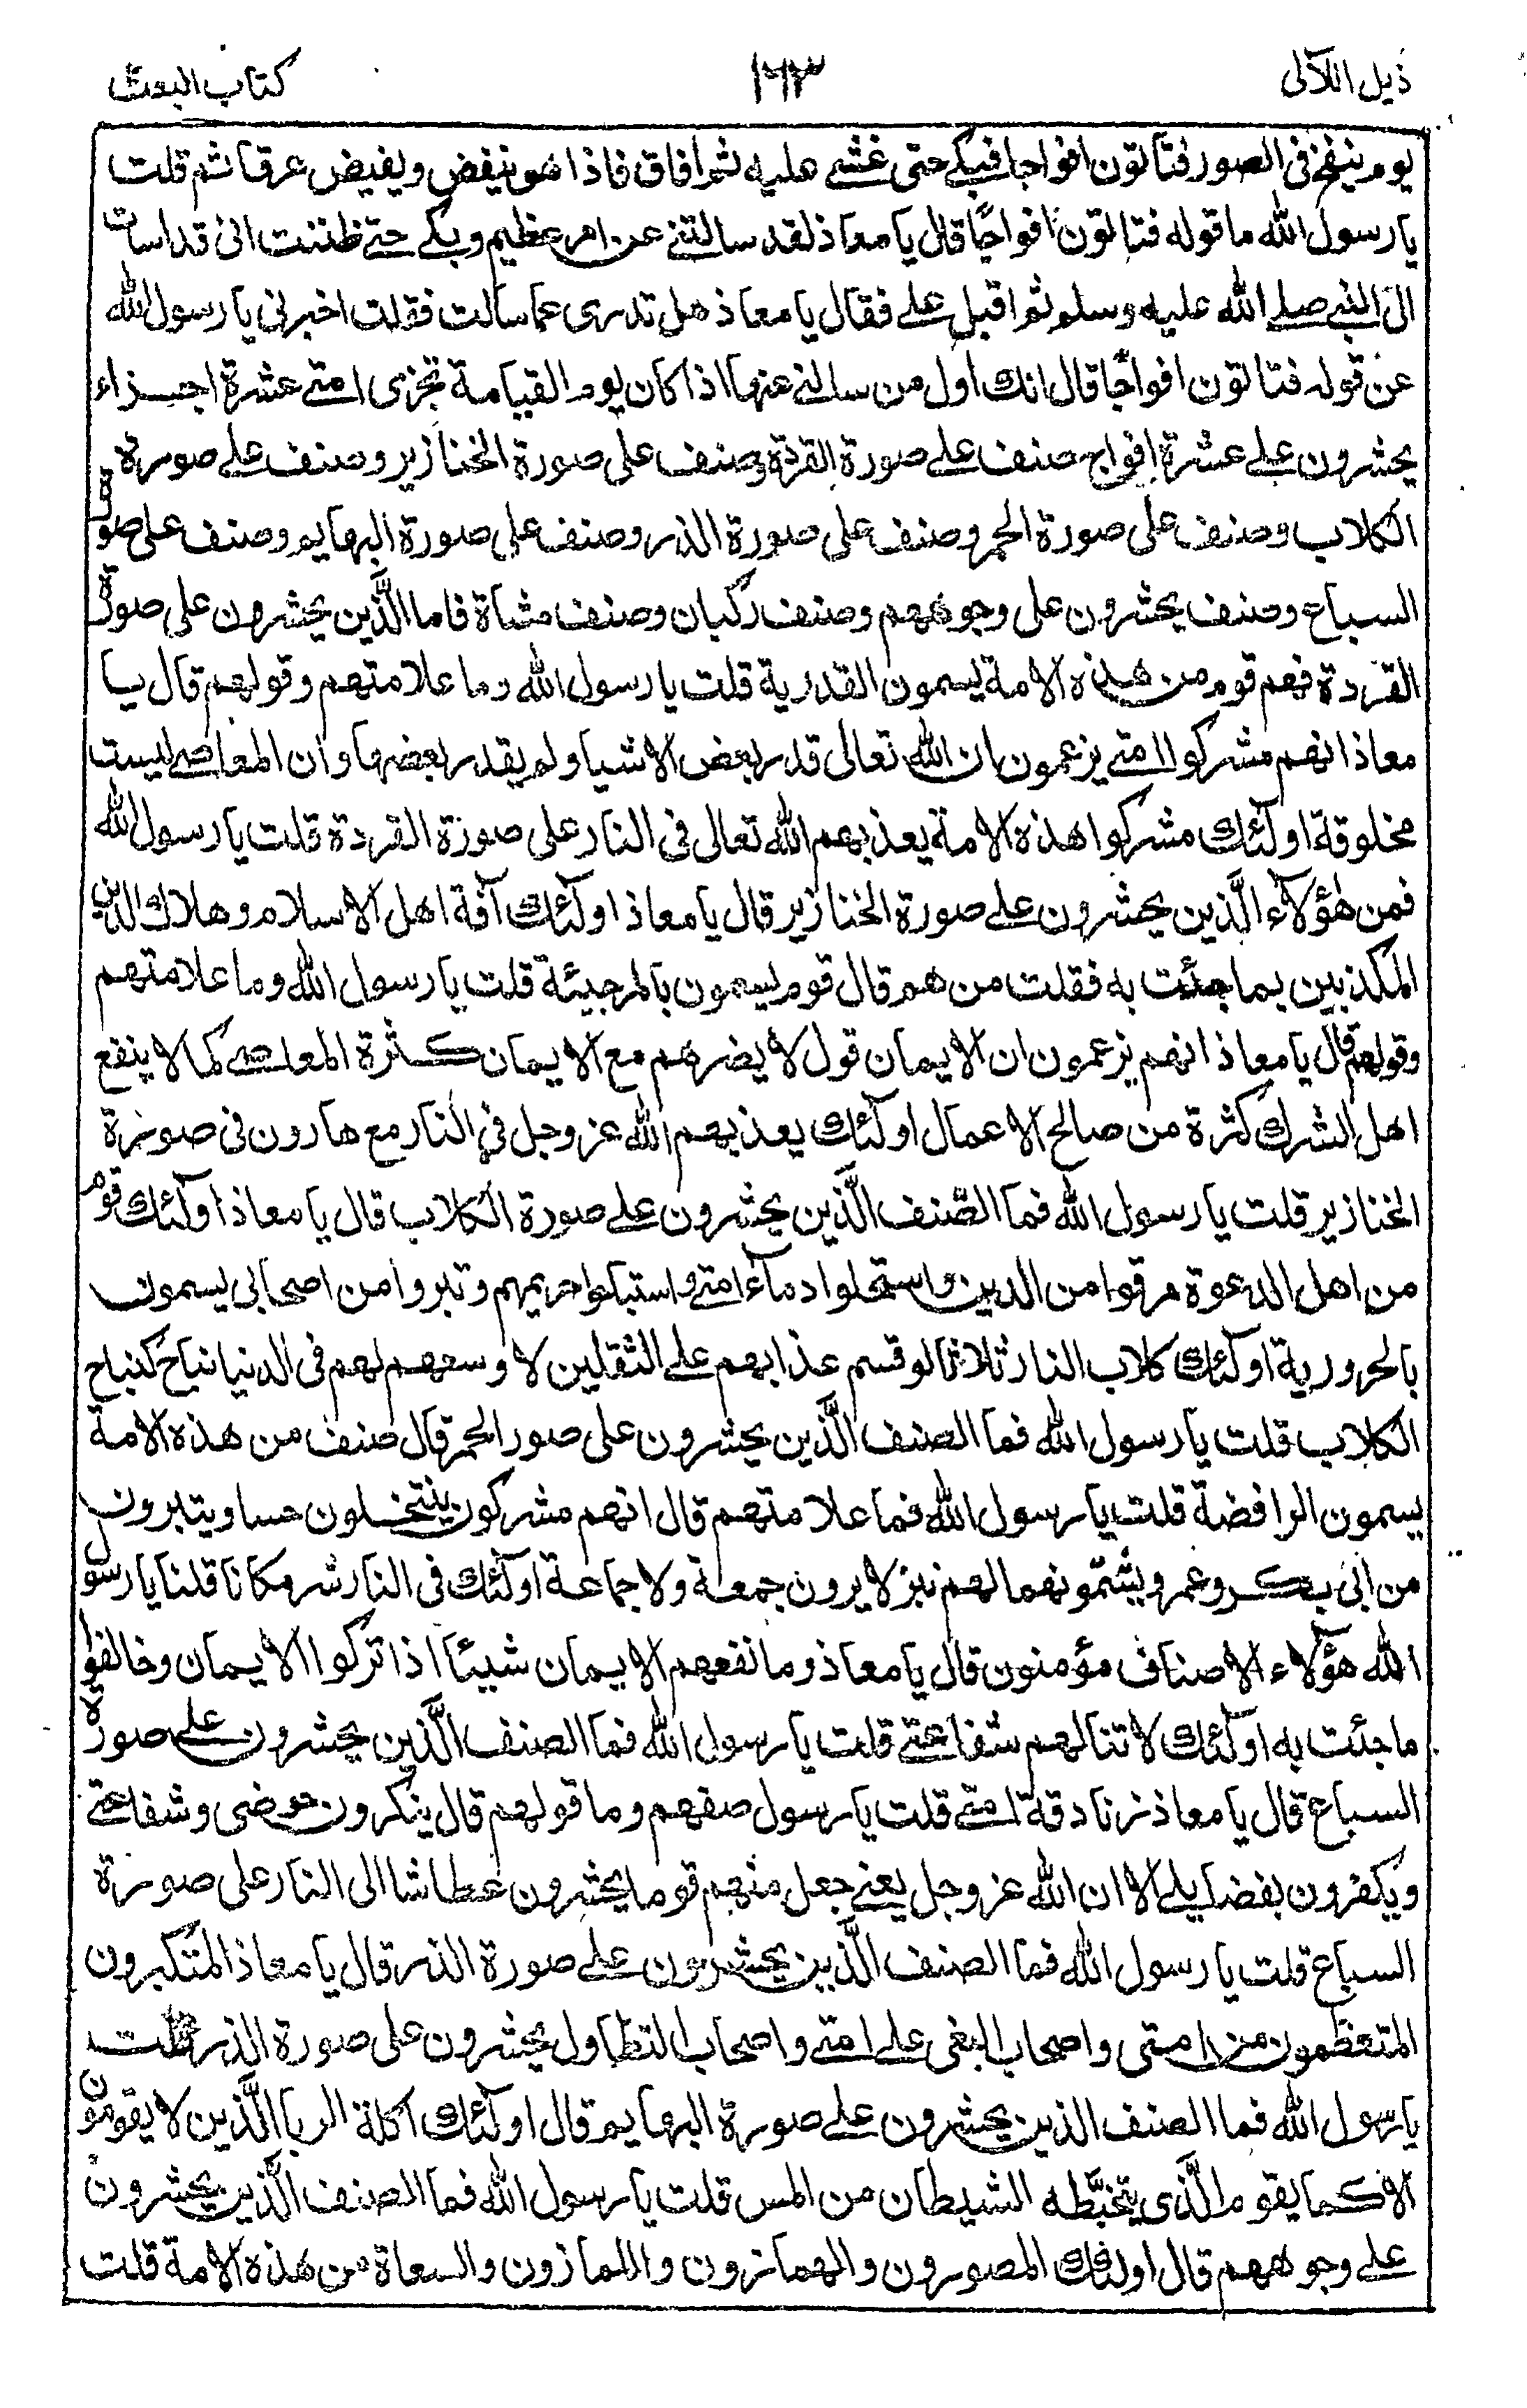 ذيل اللآلى ١٦٣ كتاب البعث
يوم ينفخ فى الصور فتاتون افواجا فبكے حتى غشے عليه ثم افاق فاذا هو ينفض ويفيض عرقا ثم قلت
يا رسول الله ما قوله فتاتون افواجًا قال يا معاذ لقد سالتنے عن امر عظيم وبكے حتے ظننت انى قد اسات
الى النبے صلے الله عليه وسلم ثم اقبل علے فقال يا معاذ هل تدرى عما سالت فقلت اخبرنى يا رسول الله
عن قوله فتاتون افواجًا قال انك اول من سالنے عنها اذا كان يوم القيامة تجزى امتے عشرة اجزاء
يحشرون علے عشرة افواج صنف علے صورة القردة وصنف على صورة الخنازير وصنف علے صورة
الكلاب وصنف على صورة الحمر وصنف على صورة الذر وصنف على صورة البهايم وصنف على صورة
السباع وصنف يحشرون على وجوههم وصنف ركبان وصنف مشاة فاما الَّذين يحشرون على صورة
القردة فهم قوم من هذه الامة يسمون القدرية قلت يا رسول الله وما علامتهم وقولهم قال يا
معاذ انهم مشركوا امتے يزعمون ان الله تعالى قدر بعض الاشيا ولم يقدر بعضها وان المعاصے ليست
مخلوقة اولٓئك مشركوا هذه الامة يعذبهم الله تعالى فى النار على صورة القردة قلت يا رسول الله
فمن هٰؤلآء الَّذين يحشرون علے صورة الخنازير قال يا معاذ اولٓئك آفة اهل الاسلام وهلاك الدين
المكذبين بما جئت به فقلت من هم قال قوم يسمون بالمرجيئة قلت يا رسول الله وما علامتهم
وقولهم قال يا معاذ انهم يزعمون ان الايمان قول لا يضرهم مع الايمان كثرة المعاصے كما لا ينفع
اهل الشرك كثرة من صالح الاعمال اولٓئك يعذبهم الله عز وجل في النار مع هارون فى صورة
الخنازير قلت يا رسول الله فما الصّنف الَّذين يحشرون علے صورة الكلاب قال يا معاذ اولٓئك قوم
من اهل الدعوة مرقوا من الدين واستحلوا دمآء امتے واستبكوا حريمهم وتبروا من اصحابى يسمون
بالحرورية اولٓئك كلاب النار ثلاثا لو قسم عذابهم علے الثقلين لاوسعهم لهم فى الدنيا نباح كنباح
الكلاب قلت يا رسول الله فما الصنف الَّذين يحشرون على صور الحمر قال صنف من هذه الامة
يسمون الرافضة قلت يا رسول الله فما علامتهم قال انهم مشركون ينتحلون حسا ويتبرون
من ابى بكر وعمر ويشتمونهما لهم نبز لا يرون جمعة ولا جماعة اولٓئك فى النار شر مكانا قلنا يا رسول
الله هٓؤلاء الاصناف مؤمنون قال يا معاذ وما نفعهم الايمان شيئا اذا تركوا الايمان وخالفوا
ما جئت به اولٓئك لا تنالهم شفاعتے قلت يا رسول الله فما الصنف الَّذين يحشرون علے صورة
السباع قال يا معاذ زنادقة امتے قلت يا رسول صفهم وما قولهم قال ينكرون حوضى وشفاعتے
ويكفرون بفضايلے الا ان الله عز وجل يعنے جعل منهم قوما يحشرون عطاشا الى النار على صورة
السباع قلت يا رسول الله فما الصنف الَّذين يحشرون علے صورة الذر قال يا معاذ المتكبرون
المتعظمون من امتى واصحاب البغى علے امتے واصحاب التطاول يحشرون على صورة الذر قلت
يا رسول الله فما الصنف الذين يحشرون علے صورة البهايم قال اولٓئك اكلة الربا الَّذين لا يقومون
الا كما يقوم الَّذى يتخبَّطه الشيطان من المس قلت يا رسول الله فما الصنف الَّذين يحشرون
علے وجوههم قال اولئك المصورون والهمازون واللمازون والسعاة من هذه الامة قلت